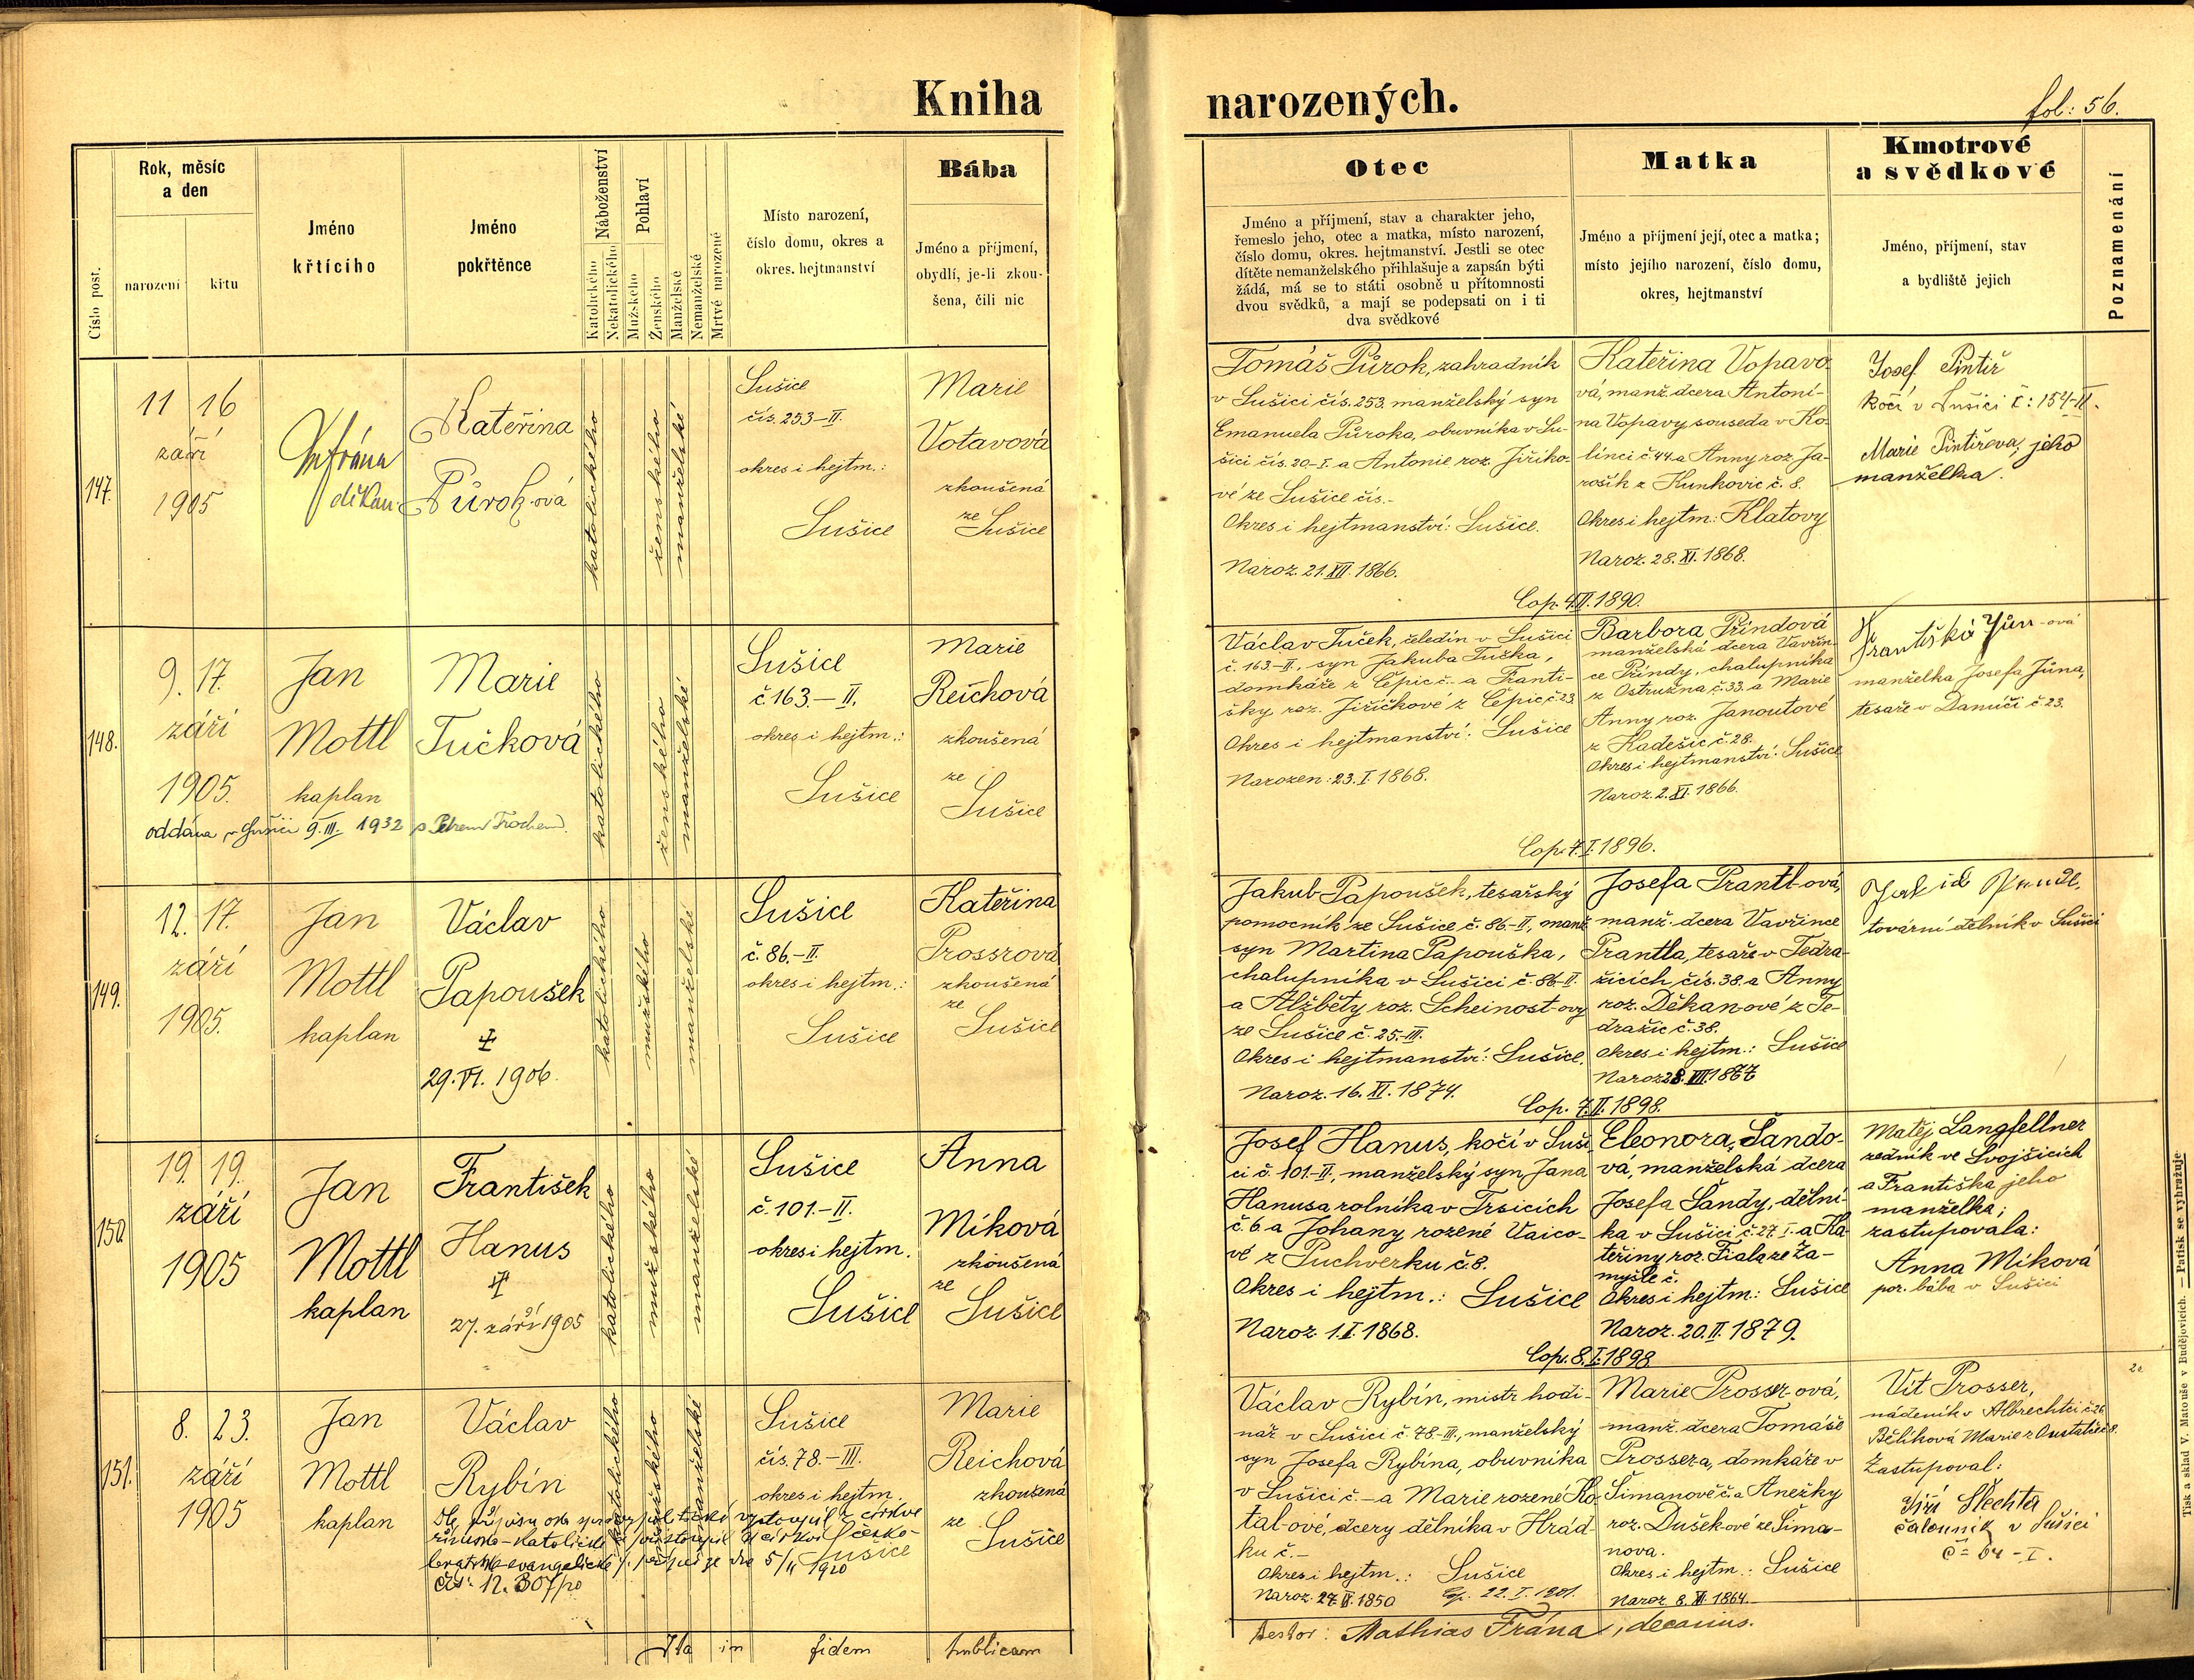 Kniha
narozených.
fol.: 56.
Číslo post.
Rok, měsíc
a den
narození
křtu
Jméno
křtícího
Jméno
pokřtěnce
Náboženství
Katolického
Nekatolického
Pohlaví
Mužského
Ženského
Manželské
Nemanželské
Mrtvé narozené
Místo narození,
číslo domu, okres a
okres. hejtmanství
Bába
Jméno a příjmení,
obydlí, je-li zkou-
šena, čili nic
Otec
Jméno a příjmení, stav a charakter jeho,
řemeslo jeho, otec a matka, místo narození,
číslo domu, okres. hejtmanství. Jestli se otec
dítěte nemanželského přihlašuje a zapsán býti
žádá, má se to státi osobně u přítomnosti
dvou svědků, a mají se podepsati on i ti
dva svědkové
Matka
Jméno a příjmení její, otec a matka;
místo jejího narození, číslo domu,
okres, hejtmanství
Kmotrové
a svědkové
Jméno, příjmení, stav
a bydliště jejich
Poznamenání
147.
11 16
září
1905
děkan
Kateřina
Půrok-ová
katolického
ženského
manželské
Sušice
čís. 253-II.
okres i hejtm.:
Sušice
Marie
Votavová
zkoušená
ze
Sušice
Tomáš Půrok, zahradník
v Sušici čís. 253. manželský syn
Emanuela Půroka, obuvníka v Su-
šici čís. 20-I. a Antonie roz. Jiřiko-
vé ze Sušice čís.-
Okres i hejtmanství: Sušice.
Naroz. 21. XII. 1866.
Kateřina Vopavo-
vá, manž. dcera Antoní-
na Vopavy souseda v Ko-
linci č. 44 a Anny roz. Ja-
rošík z Kunkovic č. 8.
Okres i hejtm: Klatovy
Naroz. 28. XI. 1868.
Cop. 4. II. 1890.
Josef Pintíř
kočí v Sušici č: 154-II.
Marie Pintířova, jeho
manželka.
148.
9. 17.
září
1905.
Jan
Mottl
kaplan
Marie
Tučková
oddána v Sušici 9. III. 1932 s Petrem
katolického
ženského
manželské
Sušice
č 163.-II.
okres i hejtm.:
Sušice
Marie
Reichová
zkoušená
ze
Sušice
Václav Tuček, čeledín v Sušici
č. 163-II., syn Jakuba Tučka,
domkáře z Čepic č.- a Franti-
šky roz. Jiříčkové z Čepic č. 23
Okres i hejtmanství: Sušice
Narozen: 23. I. 1868.
Barbora Příndová
manželská dcera Vavřin-
ce Příndy, chalupníka
z Ostružna č. 33. a Marie
Anny roz. Janoutové
z Kadešic č. 28.
Okres i hejtmanství: Sušice
Naroz. 2. XI. 1866.
Cop. 7. I. 1896.
Františka Jůn-ová
manželka Josefa Jůna,
tesaře v Damíči č 23.
149.
12. 17.
září
1905.
Jan
Mottl
kaplan
Václav
Papoušek
29. VI. 1906.
katolického
mužského
manželské
Sušice
č. 86.-II.
okres i hejtm.:
Sušice
Kateřina
Prossrová
zkoušená
ze
Sušice
Jakub Papoušek, tesařský
pomocník ze Sušice č. 86-II, manž.
syn Martina Papouška,
chalupníka v Sušici č. 86-II
a Alžběty roz. Scheinost-ovy
ze Sušice č. 25.-III.
Okres i hejtmanství: Sušice.
Naroz. 16. XI. 1874.
Josefa Prantl-ová,
manž. dcera Vavřince
Prantla, tesaře v Tedra-
žicích čís. 38. a Anny
roz. Děkan-ové z Te-
dražic č. 38.
okres i hejtm.: Sušice
Cop. 7. II. 1898.
tovární dělník v Sušici
150
19. 19.
září
1905
Jan
Mottl
kaplan
František
Hanus
27. září 1905
katolického
mužského
manželské
Sušice
č. 101.-II.
okres i hejtm.
Sušice
Anna
Míková
zkoušená
ze
Sušice
Josef Hanus, kočí v Suši
ci č. 101-II, manželský syn Jana
Hanusa rolníka v Trsicích
č. 6 a Johany rozené Vaico-
vé z Puchverku č. 8.
Okres i hejtm.: Sušice
Naroz. 1. I. 1868.
Eleonora Šando-
vá, manželská dcera
Josefa Šandy, dělní-
ka v Sušici č. 27. I. a Ka
teřiny roz. Fiala ze Ža-
myšle č.
Okres i hejtm: Sušice
Naroz. 20. II. 1879.
Cop. 8. I. 1898
Matěj Langfellner
řezník ve Svojšicích
a Františka jeho
manželka;
zastupovala:
Anna Míková
por. bába v Sušici
151.
8. 23.
září
1905
Jan
Mottl
kaplan
Václav
Rybín
římsko-katolické
bratrské evangelické
5/II 1920
katolického
mužského
manželské
Sušice
čís. 78.-III.
okres i hejtm.
Sušice
Marie
Reichová
zkoušená
ze
Sušice
Václav Rybín, mistr hodi-
nář v Sušici č. 78-III, manželský
syn Josefa Rybína, obuvníka
v Sušici č.- a Marie rozené Ko-
tal-ové, dcery dělníka v Hrád-
ku č.-
Okres i hejtm.: Sušice
Cop. 22. I. 1901.
Marie Prosser-ová,
manž. dcera Tomáše
Prossera, domkáře v
Šimanově č. a Anežky
roz. Dušek-ové ze Šima-
nova.
Okres i hejtm.: Sušice
Naroz. 8. XI. 1864.
Vít Prosser,
nádeník v Albrechtci č. 26
Bělíková Marie
Zastupoval:
Jiří Šlechta
čalouník v Sušici
č= 64-I.
Ita in fidem publicam
testor: Mathias Frána, decanus.
Tisk a sklad V. Matouše v Budějovicích. — Patisk se vyhražuje